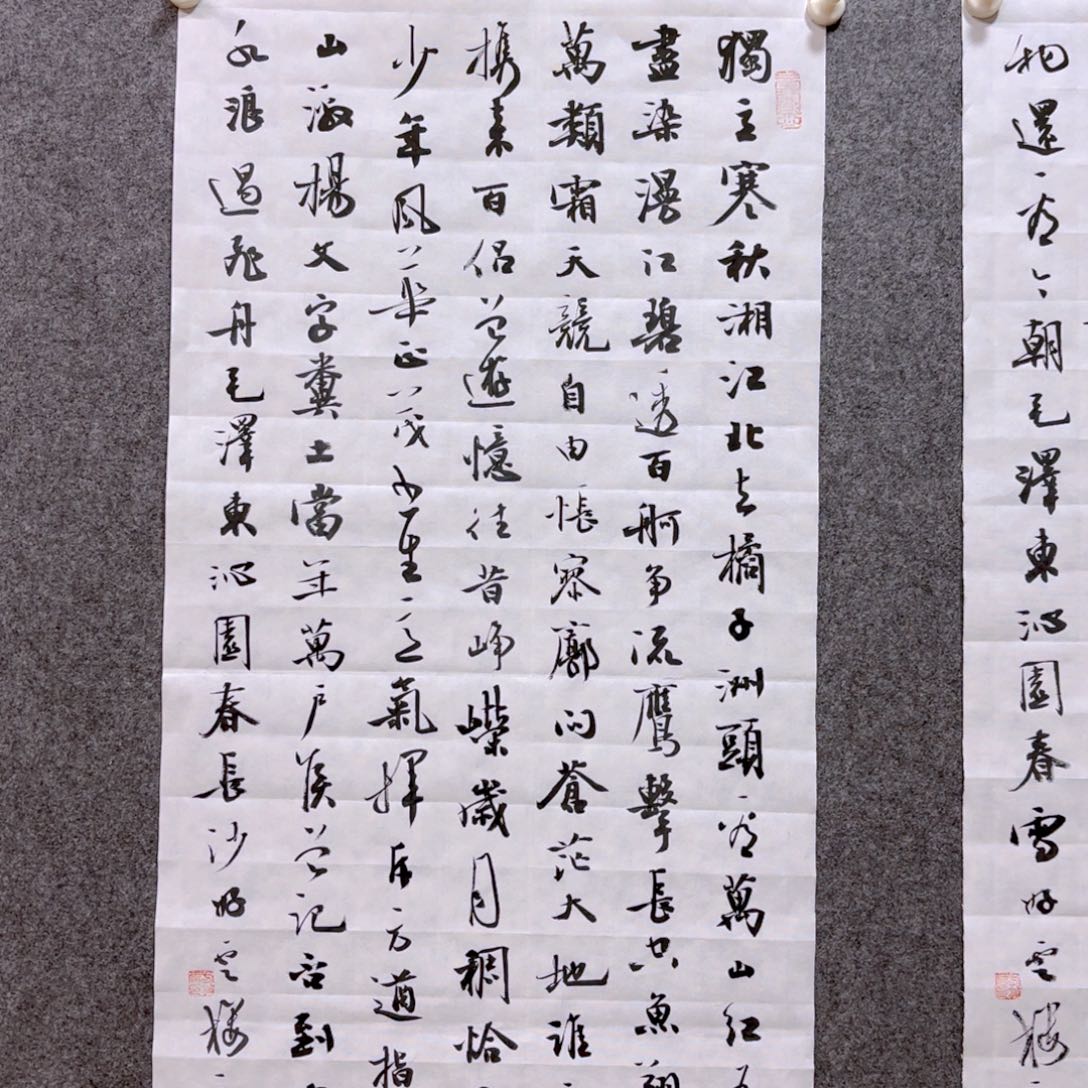 物還看今朝毛澤東沁園春雪雲樓
獨立寒秋湘江北去橘子洲頭看萬山紅
盡染漫江碧透百舸争流鷹擊長空魚翔
萬類霜天競自由悵寥廓問蒼茫大地誰
携來百侣曾遊憶往昔崢嶸歲月稠恰
少年風華正茂書生意氣揮斥方遒指
山激揚文字糞土當年萬户侯曾記否到
水浪遏飛舟毛澤東沁園春長沙雲樓